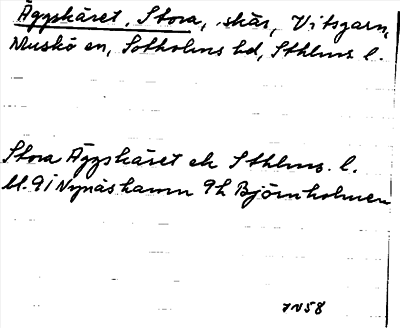 Äggskäret, Stora, skär, Vitsgarn,
Muskö sn, Sotholms hd, Sthlms l.
Stora Äggskäret ek Sthlms. l.
bl. 91 Nynäshamn 9h Björnholmen
JN58